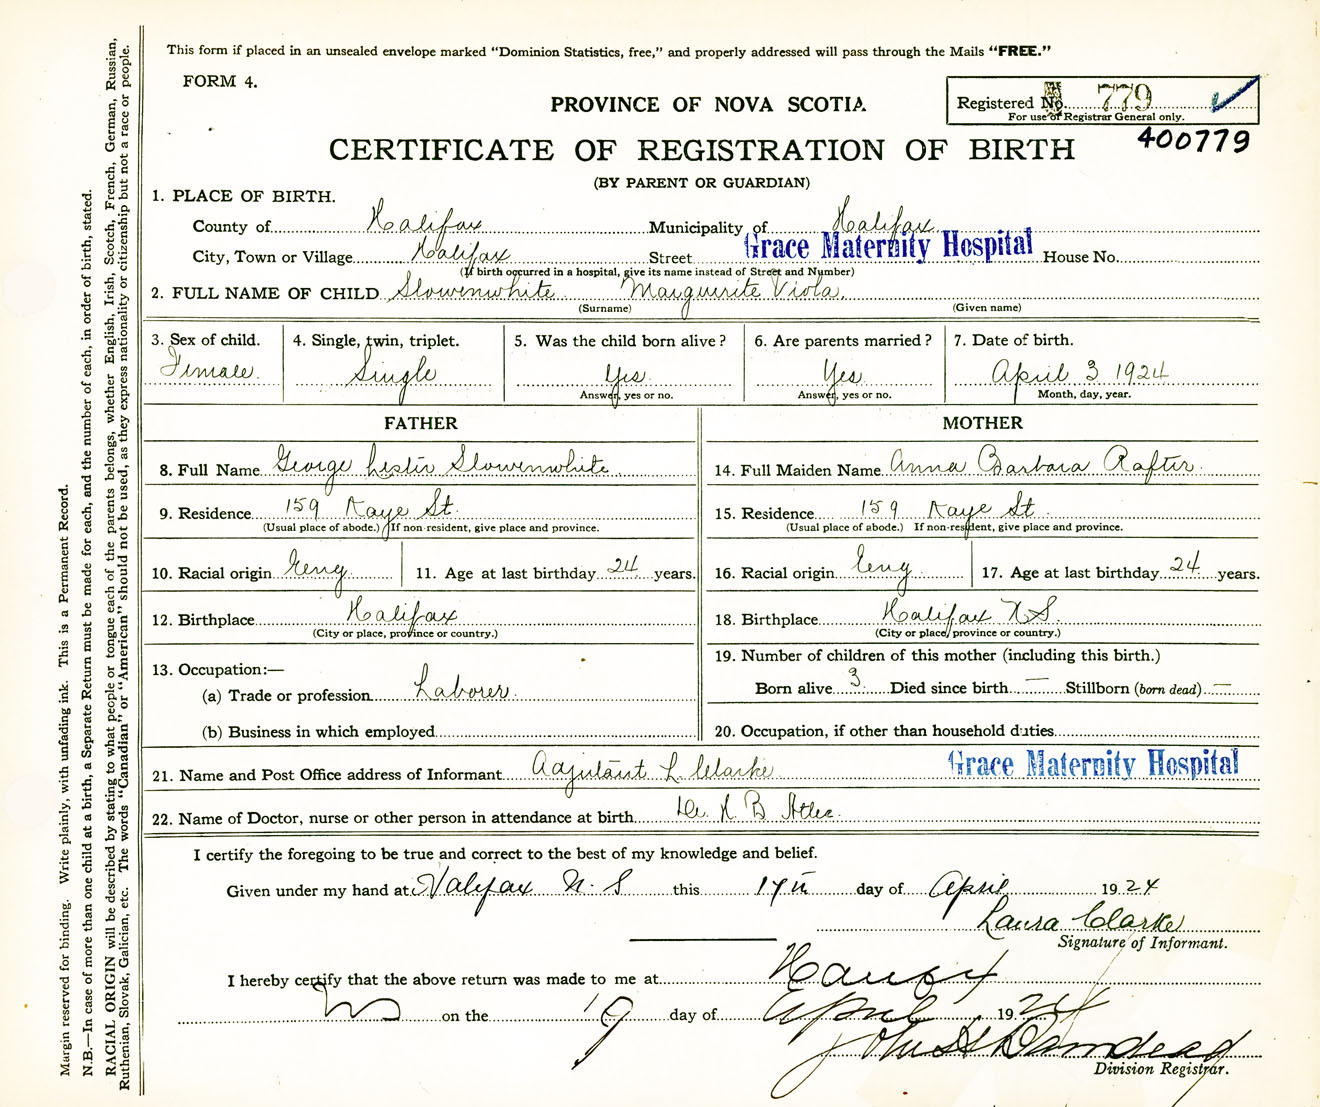 This form if placed in an unsealed envelope marked "Dominion Statistics, free," and properly addressed will pass through the Mails "FREE."
FORM 4.
Registered No. 779
For use of Registrar General only.
PROVINCE OF NOVA SCOTIA
400779
CERTIFICATE OF REGISTRATION OF BIRTH
(BY PARENT OR GUARDIAN)
1. PLACE OF BIRTH.
County of Halifax Municipality of Halifax
City, Town or Village Halifax Street Grace Maternity Hospital House No.
(If birth occurred in a hospital, give its name instead of Street and Number)
2. FULL NAME OF CHILD Slowenwhite Marguerite Viola.
(Surname) (Given name)
3. Sex of child. 4. Single, twin, triplet. 5. Was the child born alive? 6. Are parents married? 7. Date of birth.
Female. Single Yes. Yes. April 3 1924
Answer, yes or no. Answer, yes or no. Month, day, year.
FATHER MOTHER
8. Full Name George Lester Slowenwhite 14. Full Maiden Name Anna Barbara Rafter.
9. Residence 159 Kaye St. 15. Residence 159 Kaye St
(Usual place of abode.) If non-resident, give place and province. (Usual place of abode.) If non-resident, give place and province.
10. Racial origin Eng. 11. Age at last birthday 24 years. 16. Racial origin Eng 17. Age at last birthday 24 years.
12. Birthplace Halifax 18. Birthplace Halifax N.S.
(City or place, province or country.) (City or place, province or country.)
13. Occupation:— 19. Number of children of this mother (including this birth.)
(a) Trade or profession Laborer. Born alive 3. Died since birth — Stillborn (born dead) —
(b) Business in which employed 20. Occupation, if other than household duties
21. Name and Post Office address of Informant Adjutant L. Clarke Grace Maternity Hospital
22. Name of Doctor, nurse or other person in attendance at birth Dr. H. B. Atlee.
I certify the foregoing to be true and correct to the best of my knowledge and belief.
Given under my hand at Halifax N. S this 17th day of April 1924
Laura Clarke
Signature of Informant.
I hereby certify that the above return was made to me at Halifax
on the 19 day of April 1924
Division Registrar.
Margin reserved for binding. Write plainly, with unfading ink. This is a Permanent Record.
N.B.—In case of more than one child at a birth, a Separate Return must be made for each, and the number of each, in order of birth, stated.
RACIAL ORIGIN will be described by stating to what people or tongue each of the parents belongs, whether English, Irish, Scotch, French, German, Russian,
Ruthenian, Slovak, Galician, etc. The words "Canadian" or "American" should not be used, as they express nationality or citizenship but not a race or people.